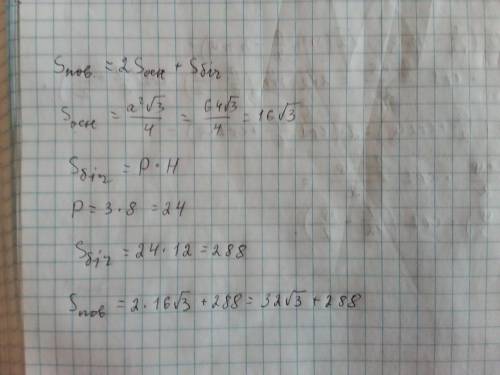 Sпов. = 2Sосн + Sбіч
Sосн = a²√3/4 = 64√3/4 = 16√3
Sбіч = P · H
P = 3 · 8 = 24
Sбіч = 24 · 12 = 288
Sпов = 2 · 16√3 + 288 = 32√3 + 288